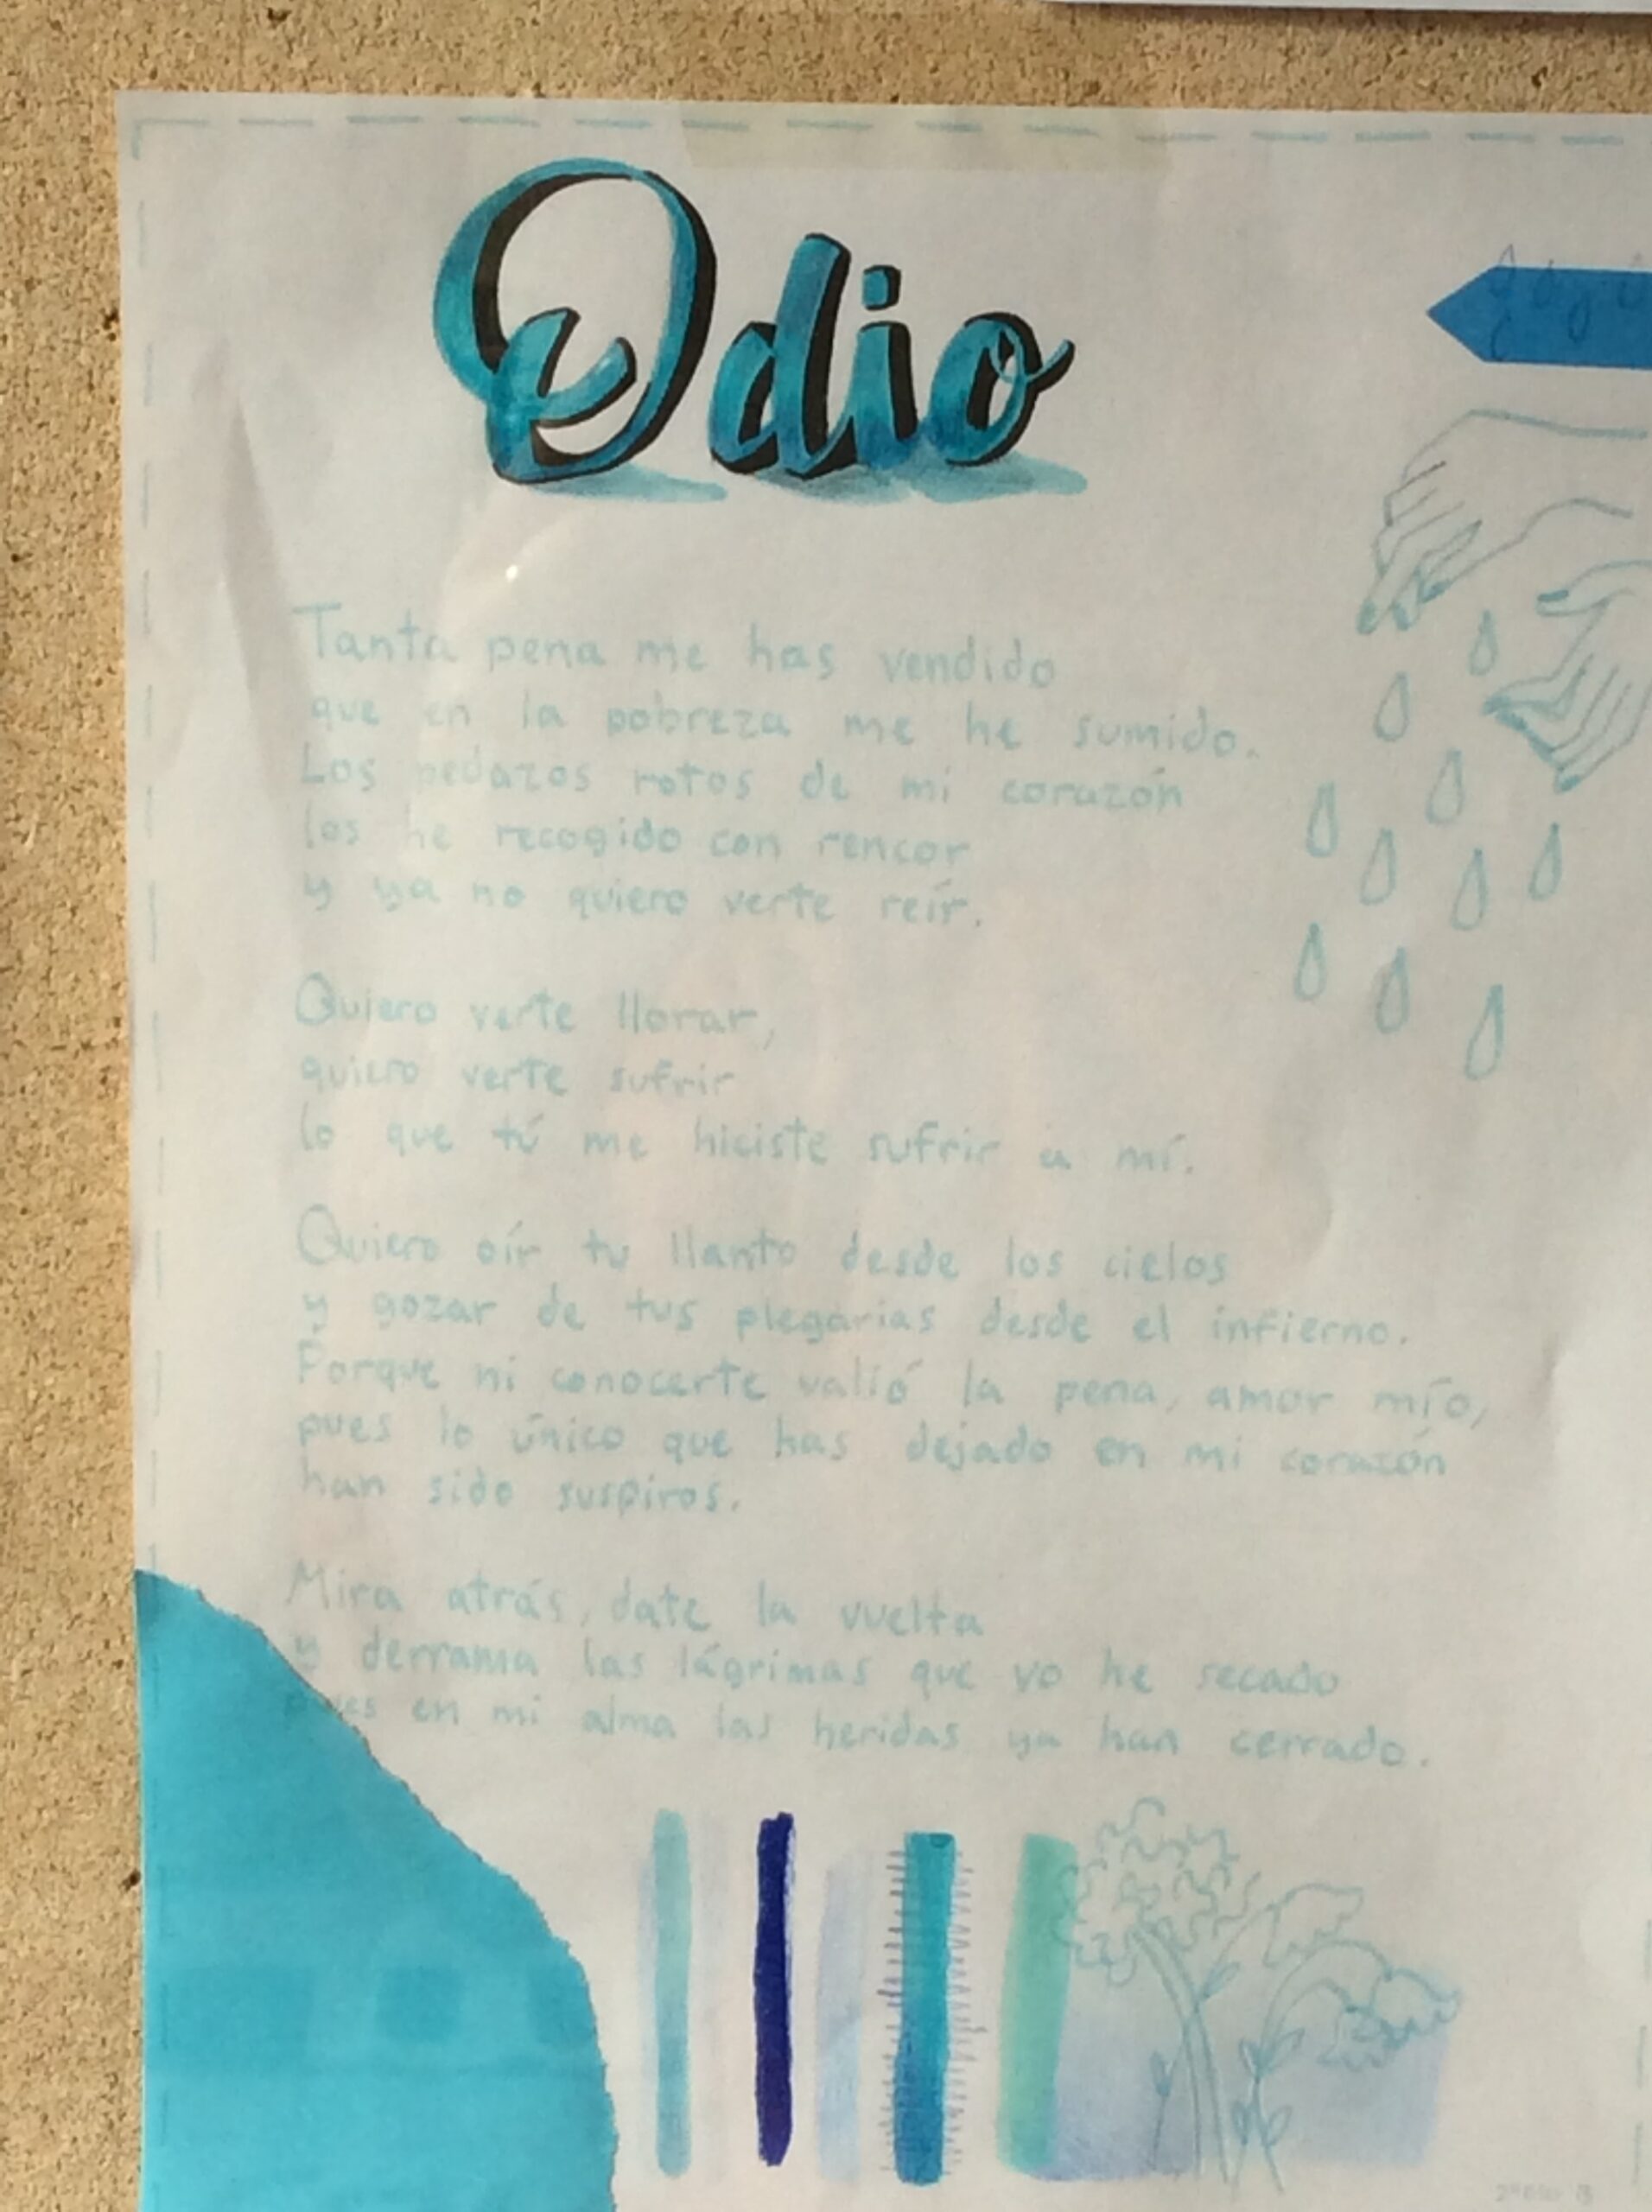 Odio
Tanta pena me has vendido
que en la pobreza me he sumido.
Los pedazos rotos de mi corazón
los he recogido con rencor
y ya no quiero verte reír.
Quiero verte llorar,
quiero verte sufrir
lo que tú me hiciste sufrir a mí.
Quiero oír tu llanto desde los cielos
y gozar de tus plegarias desde el infierno.
Porque ni conocerte valió la pena, amor mío,
pues lo único que has dejado en mi corazón
han sido suspiros.
Mira atrás, date la vuelta
y derrama las lágrimas que yo he secado
pues en mi alma las heridas ya han cerrado.